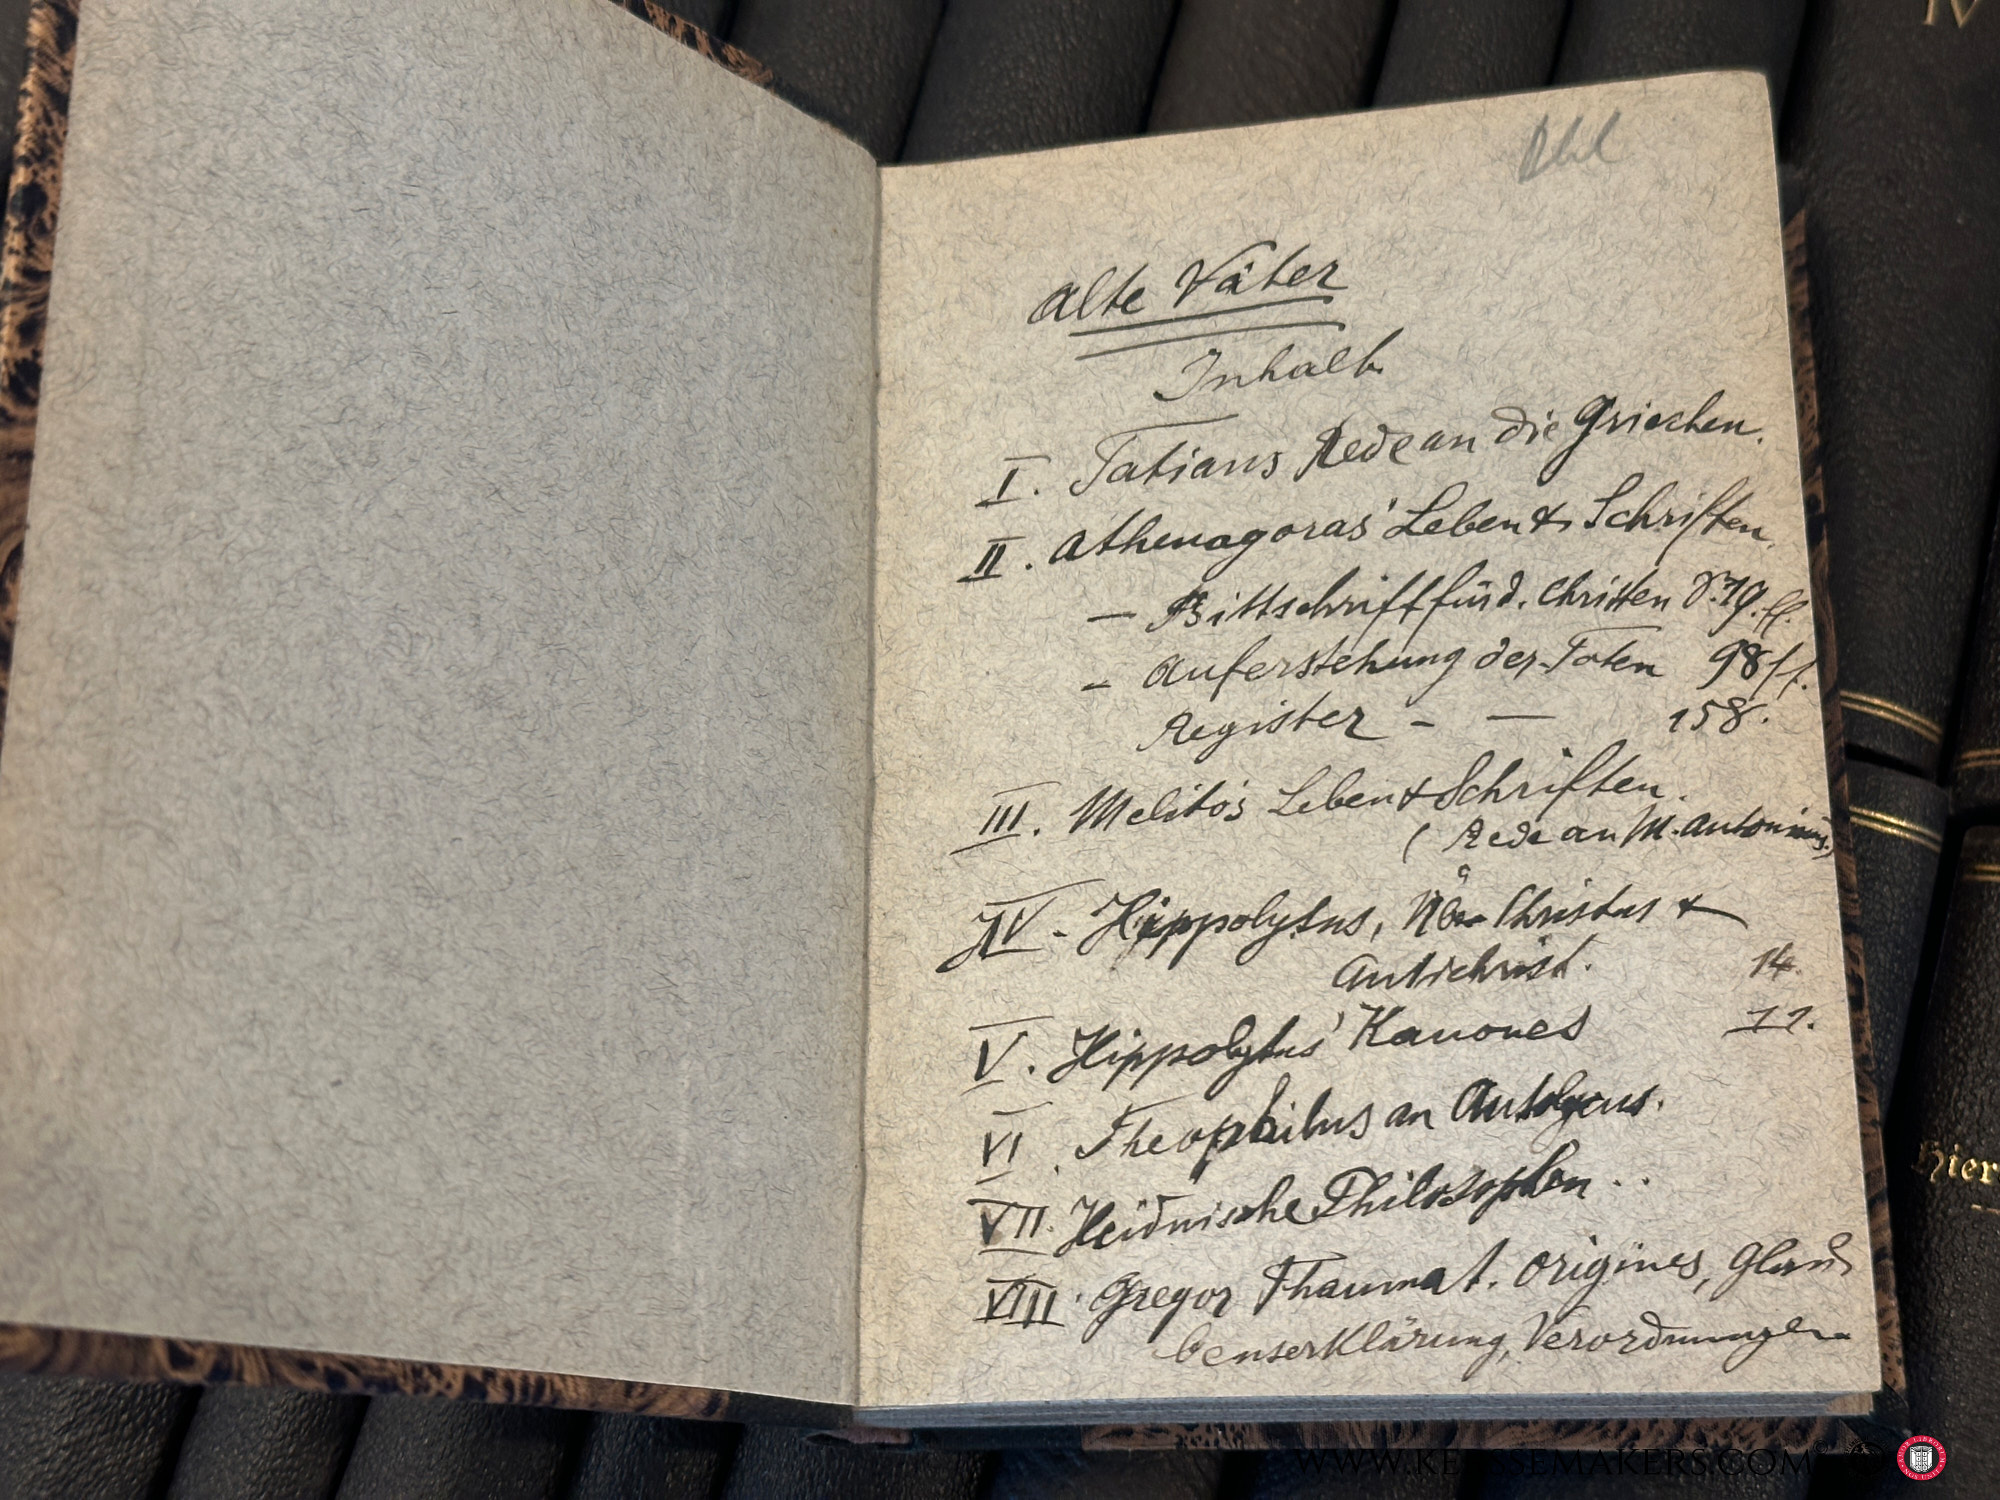 IV
alte Väter
Inhalt.
I. Tatians Rede an die Griechen.
II. Athenagoras' Leben & Schriften,
— Bittschrift für d. Christen S. 19. ff.
– Auferstehung der Toten 98 ff.
Register – — 158.
III. Melito's Leben & Schriften.
(Rede an M. Antoninus.)
IV. Hippolytus, Über Christus &
Antichrist. 14.
V. Hippolytus' Kanones 11.
VI. Theophilus an Autolycus.
VII. Heidnische Philosophen . .
VIII. Gregor Thaumat. Origines, Glau-
benserklärung, Verordnungen
Hier
WWW.KETUSEMAKERS.COM